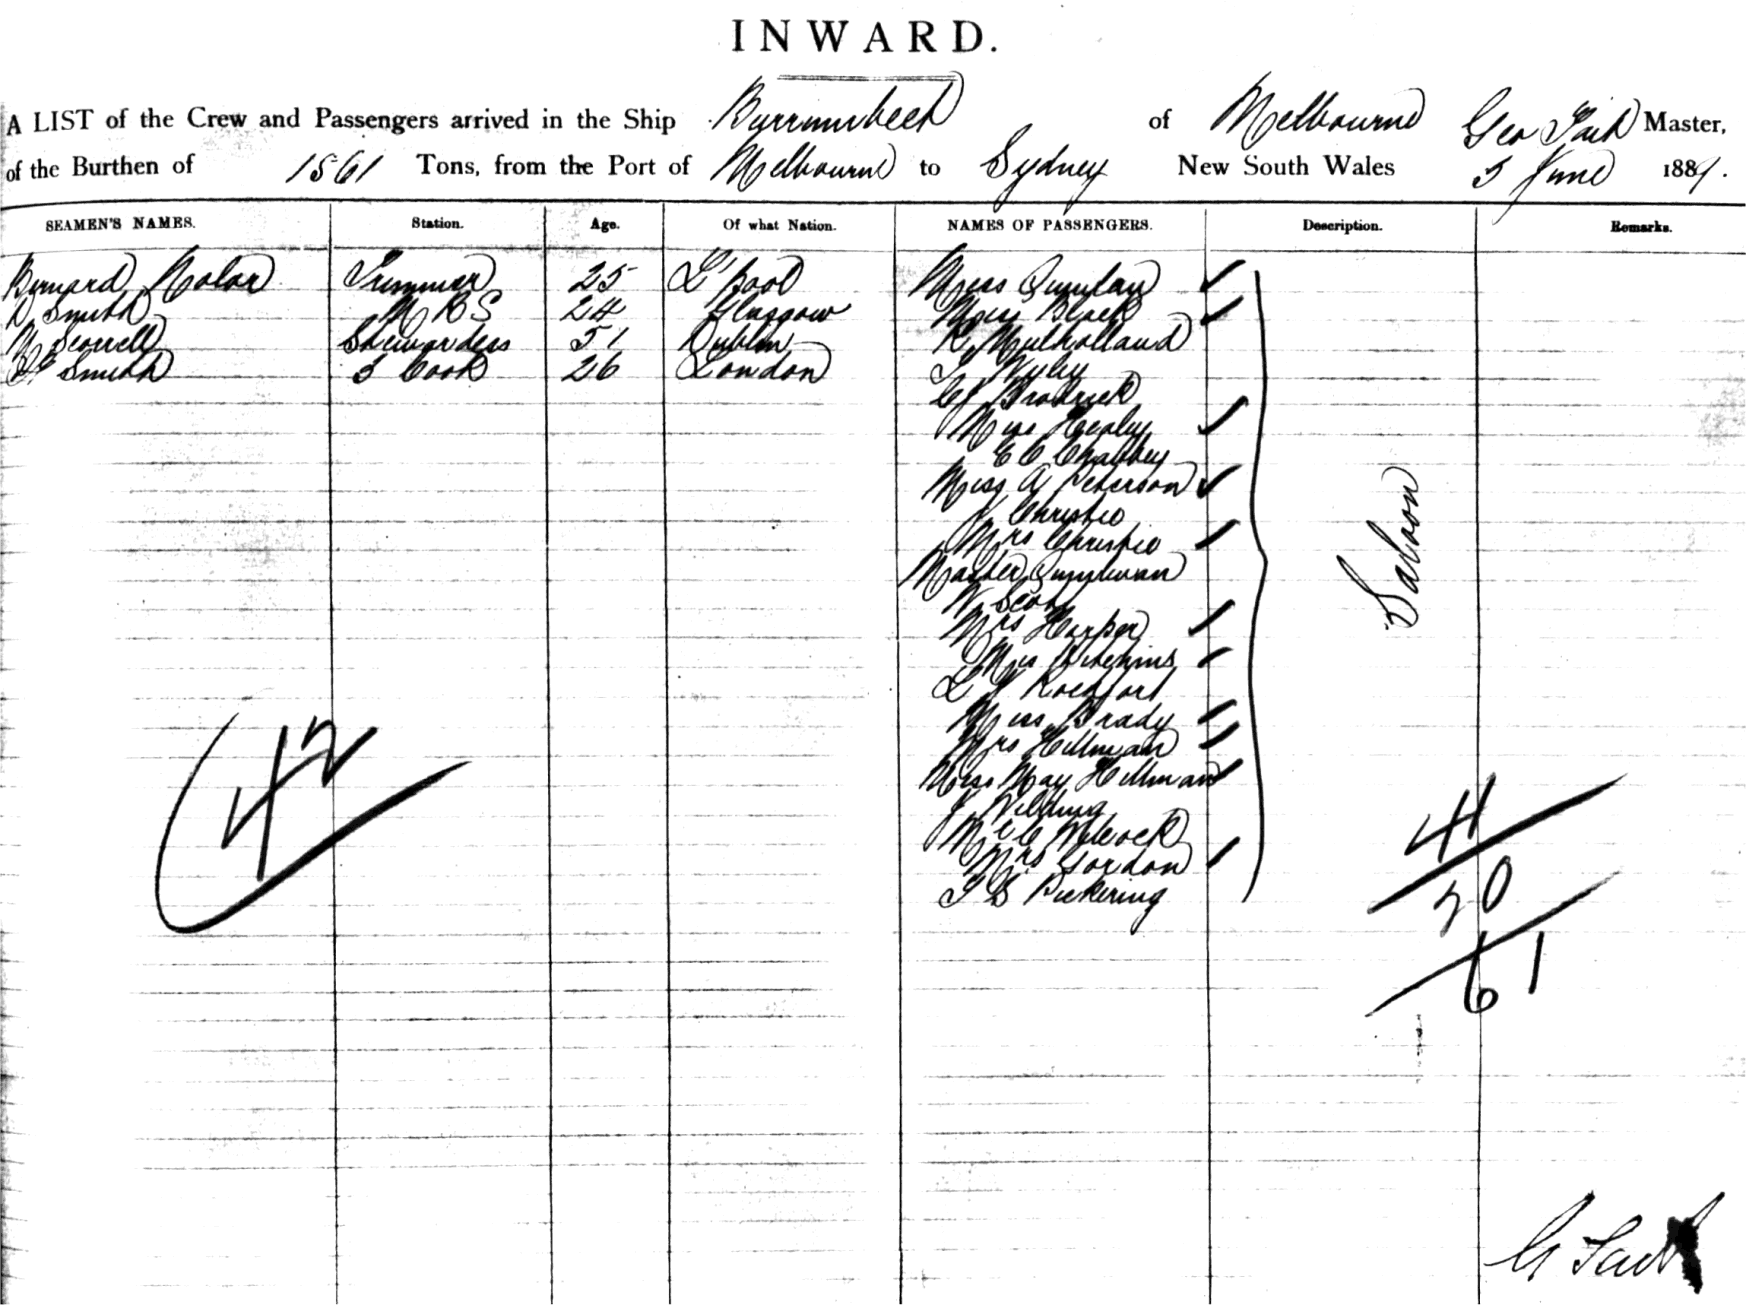 INWARD.
A LIST of the Crew and Passengers arrived in the Ship Burrumbeet of Melbourne Geo Master,
of the Burthen of 1561 Tons, from the Port of Melbourne to Sydney New South Wales 5 June 1889.
SEAMEN'S NAMES. Station. Age. Of what Nation. NAMES OF PASSENGERS. Description. Remarks.
Bernard Trimmer 25 L'pool Miss Quinlan
D Smith M R S 24 Glasgow Miss Black
Scorrell Stewardess 51 Dublin R Mulholland
Smith 3 Cook 26 London Wyly
Brodrick
Miss Healy
E C Chabbey
Miss A Peterson
J Christie
Mrs Christie
Master
W Scott
Mrs Harper
Hitchins
L Rochfort
Miss Brady
Mrs Hillman
Miss May Hillman
J Wilding
Wilcock
Mrs Gordon
Pickering
Saloon
42
41
20
61
G